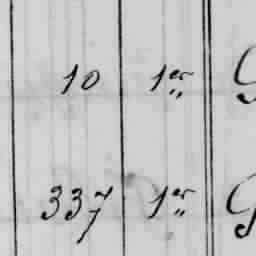 10 1er G
337 1er G